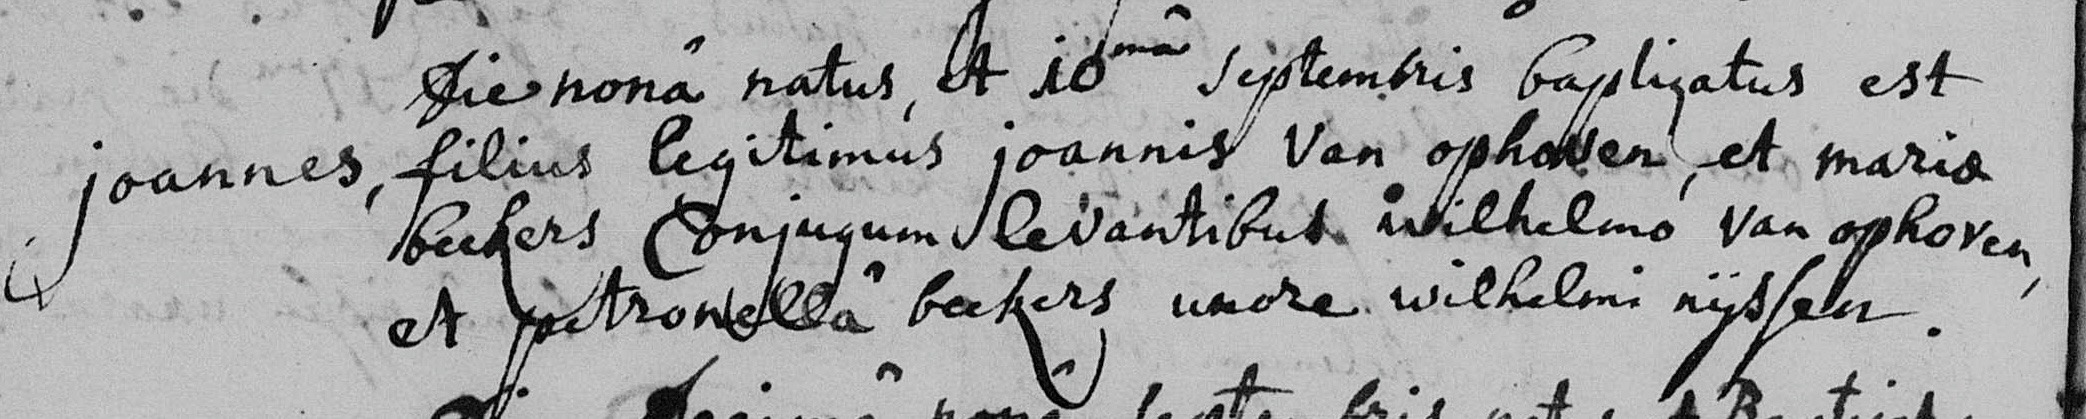 Die nonâ natus, et 10mâ Septembris baptizatus est
joannes, filius legitimus joannis Van ophoven, et mariæ
beckers Conjugum levantibus wilhelmo Van ophoven,
et petronellâ beckers uxore wilhelmi nijssen.